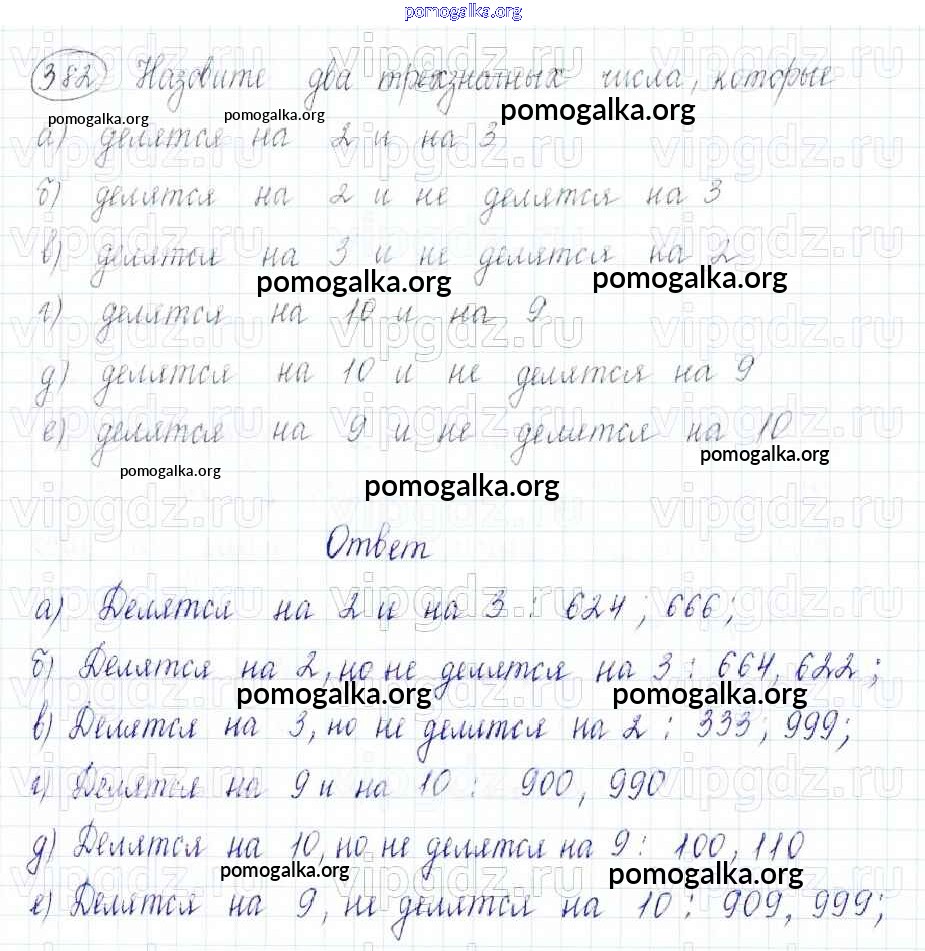 pomogalka.org
382 Назовите два трехзначных числа, которые
pomogalka.org pomogalka.org pomogalka.org
а) делятся на 2 и на 3
б) делятся на 2 и не делятся на 3
в) делятся на 3 и не делятся на 2
pomogalka.org pomogalka.org
г) делятся на 10 и на 9
д) делятся на 10 и не делятся на 9
е) делятся на 9 и не делятся на 10
pomogalka.org pomogalka.org
pomogalka.org
vipgdz.ru vipgdz.ru vipgdz.ru
Ответ
а) Делятся на 2 и на 3 : 624 ; 666;
б) Делятся на 2, но не делятся на 3 : 664, 622 ;
pomogalka.org pomogalka.org
в) Делятся на 3, но не делятся на 2 : 333 ; 999;
г) Делятся на 9 и на 10 : 900, 990
д) Делятся на 10, но не делятся на 9 : 100, 110
pomogalka.org pomogalka.org
е) Делятся на 9, не делятся на 10 : 909, 999;